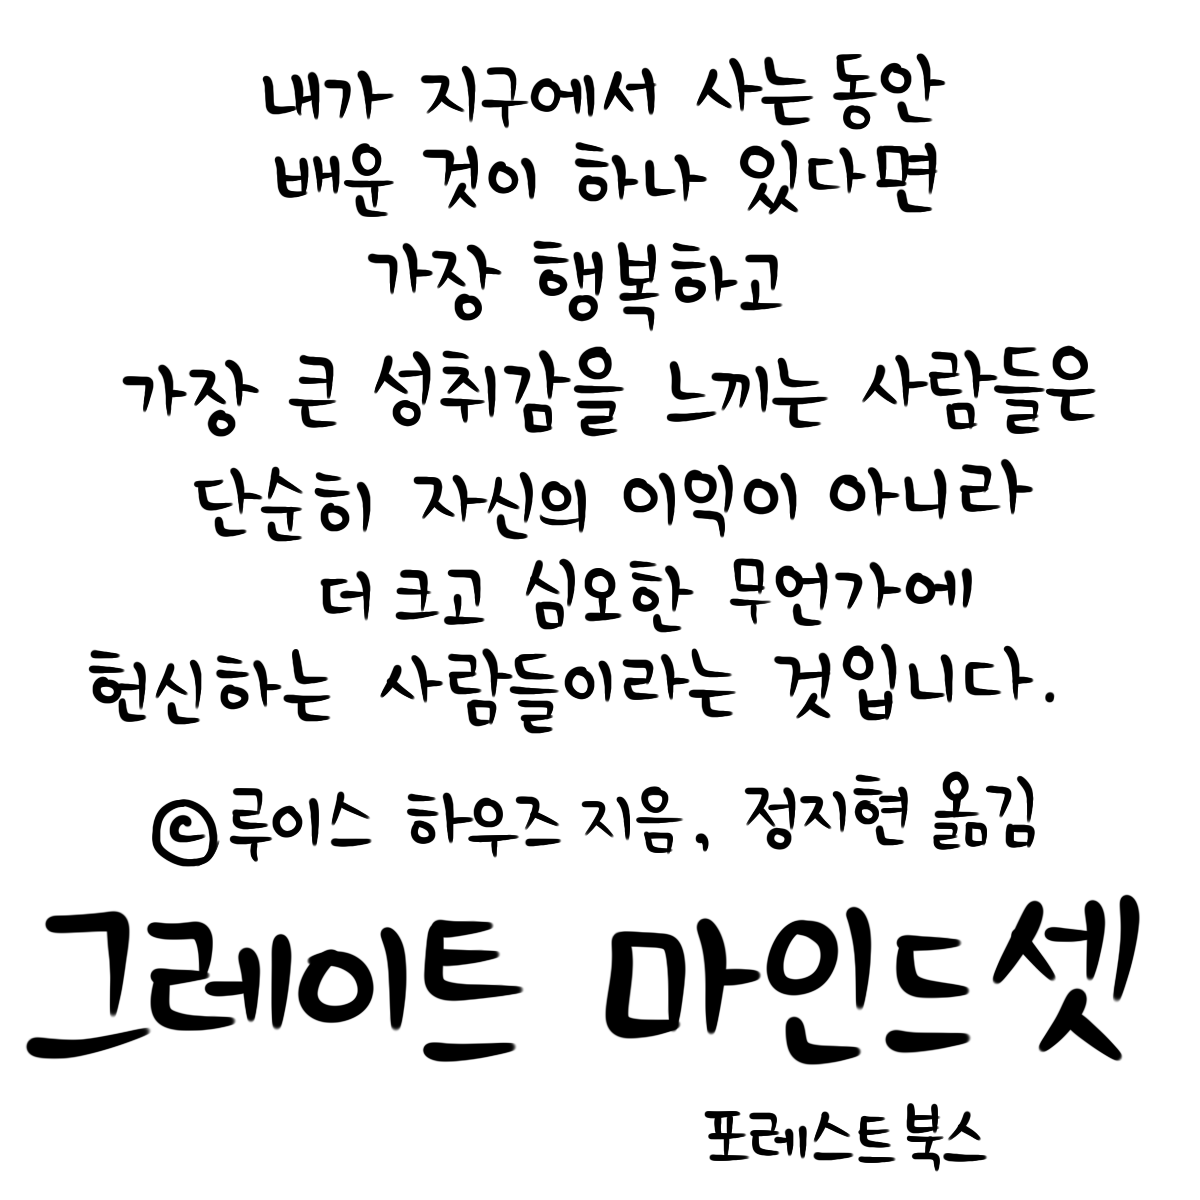 내가 지구에서 사는동안
배운 것이 하나 있다면
가장 행복하고
가장 큰 성취감을 느끼는 사람들은
단순히 자신의 이익이 아니라
더 크고 심오한 무언가에
헌신하는 사람들이라는 것입니다.
©루이스 하우즈 지음, 정지현 옮김
그레이트 마인드셋
포레스트북스